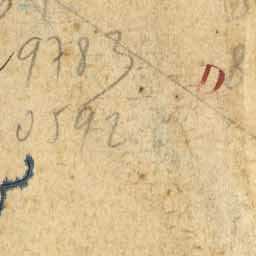 9783
D 8
0592